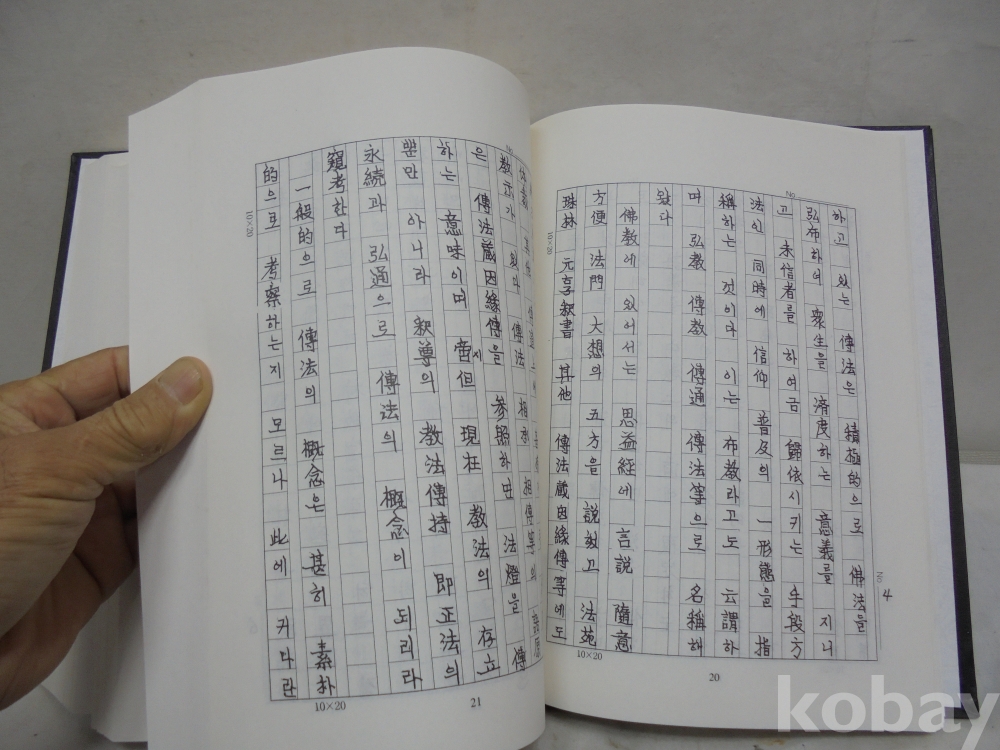 하고 있는 傳法은 積極的으로 佛法을
弘布하여 衆生을 濟度하는 意義를 지니
고 未信者를 하여금 歸依시키는 手段方
法인 同時에 信仰 普及의 一形態을 指
稱하는 것이다 이는 布敎라고도 云謂하
며 弘敎 傳敎 傳通 傳法等으로 名稱해
왔다
佛敎에 있어서는 思益經에 言說 隨意
方便 法門 大想의 五方을 說하고 法苑
珠林 元亨釈書 其他 傳法藏因緣傳等에도
敎示가 있다 傳法 相承 相傳等의
은 傳法藏因緣傳을 參照하면 法燈을 傳
하는 意味이며 啻但 現在 敎法의 存立
지
뿐만 아니라 釈尊의 敎法傳持 即正法의
永続과 弘通으로 傳法의 概念이 되리라
窺考한다
一般的으로 傳法의 概念은 甚히 素朴
的으로 考察하는지 모르나 此에 커다란
No.
No. 4
10×20
10×20
20
No.
10×20
10×20
21
kobay